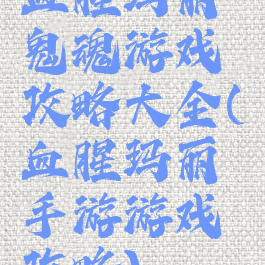 血腥玛丽
鬼魂游戏
攻略大全(
血腥玛丽
手游游戏
攻略)